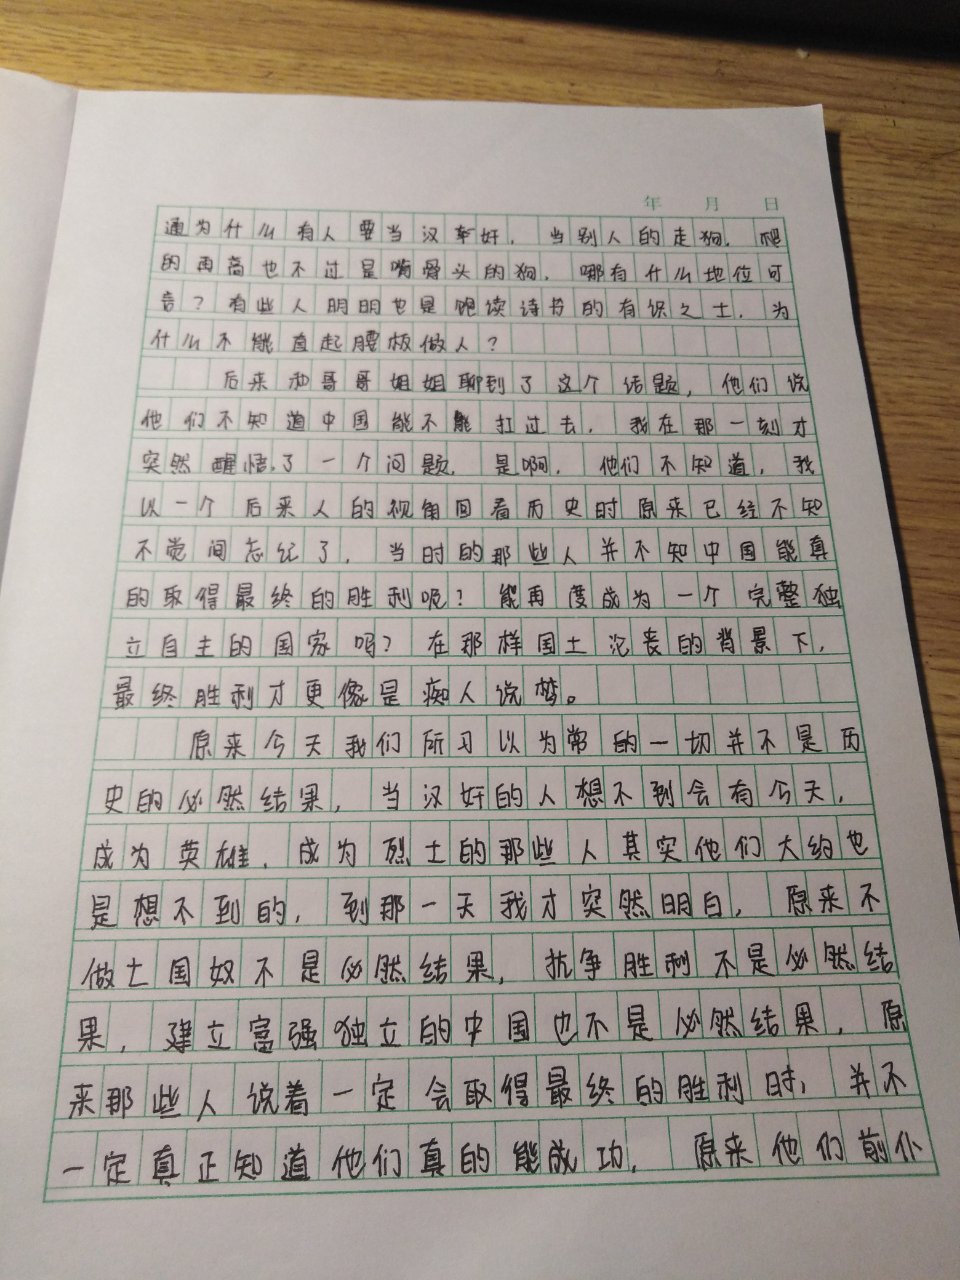 年 月 日
通为什么有人要当汉奸，当别人的走狗，爬
的再高也不过是啃骨头的狗，哪有什么地位可
言？有些人明明也是饱读诗书的有识之士，为
什么不能直起腰板做人？
后来和哥哥姐姐聊到了这个话题，他们说
他们不知道中国能不能扛过去，我在那一刻才
突然醒悟了一个问题，是啊，他们不知道，我
以一个后来人的视角回看历史时原来已经不知
不觉间忘记了，当时的那些人并不知中国能真
的取得最终的胜利呢？能再度成为一个完整独
立自主的国家吗？在那样国土沦丧的背景下，
最终胜利才更像是痴人说梦。
原来今天我们所习以为常的一切并不是历
史的必然结果，当汉奸的人想不到会有今天，
成为英雄、成为烈士的那些人其实他们大约也
是想不到的，到那一天我才突然明白，原来不
做亡国奴不是必然结果，抗争胜利不是必然结
果，建立富强独立的中国也不是必然结果，原
来那些人说着一定会取得最终的胜利时，并不
一定真正知道他们真的能成功，原来他们前仆